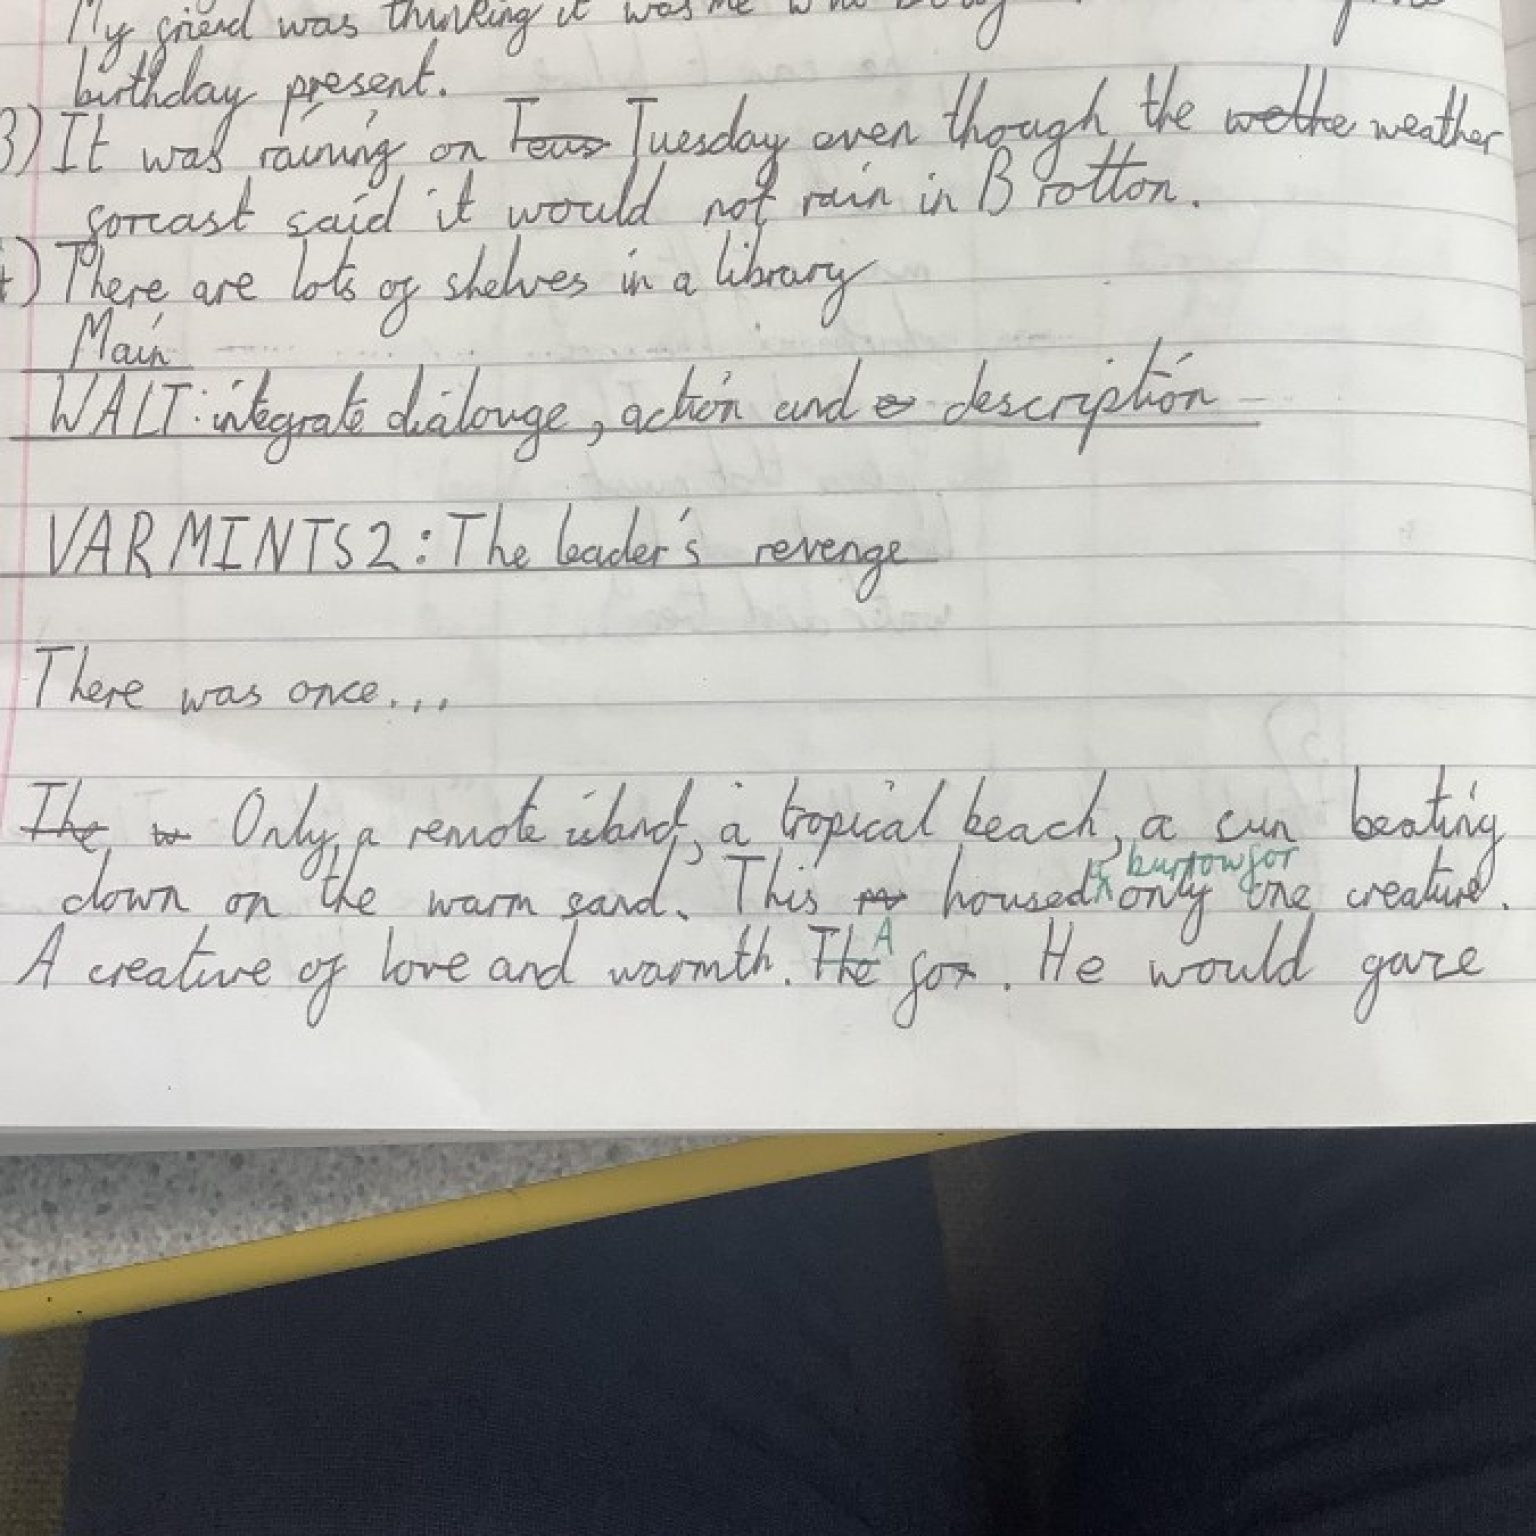 My friend was thinking it was me who
birthday present.
3) It was raining on Tuesday even though the weather
forcast said it would not rain in Brotton.
4) There are lots of shelves in a library
Main
WALT: integrate dialouge, action and description
VARMINTS 2: The leader's revenge
There was once...
The Only, a remote island, a tropical beach, a sun beating
burrow for
down on the warm sand. This housed only one creature.
A
A creature of love and warmth. The fox. He would gaze